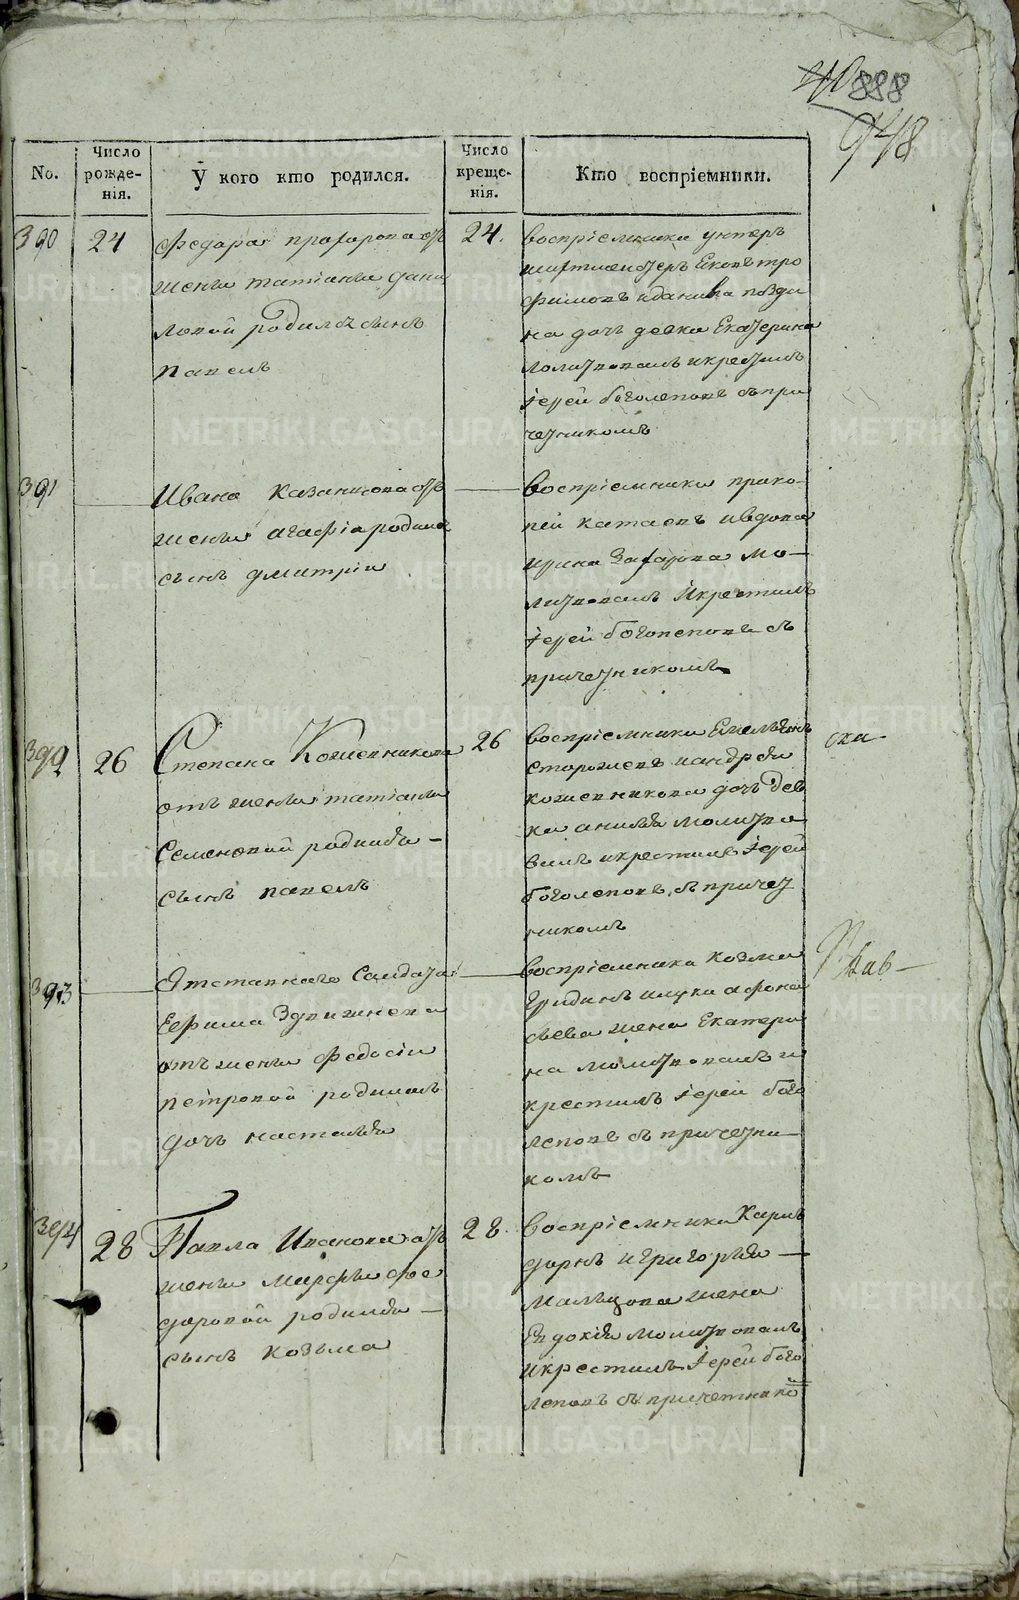 888
948
No.
Число рожденія.
У кого кто родился.
Число крещенія.
Кто воспріемники.
390
24
Федора Прохорова отъ
жены татіаны дани
ловой родился сынъ
павелъ
24.
воспріемники унтеръ
шихтмейстеръ Яковъ тро
фимовъ
на дочь девка Екатерина
молитвовалъ и крестилъ
іерей боголеповъ съ при
четникомъ
391
Ивана Казанцова отъ
жены агафіи родился
сынъ дмитрій
воспріемники проко
пей катаевъ и вдова
ирина Захарова мо
литвовалъ и крестилъ
іерей боголеповъ съ
причетникомъ
392
26
Степана Кожевникова
отъ жены татіаны
Семеновой родился
сынъ павелъ
26
воспріемники Емельянъ
стариковъ и андрея
кожевникова дочь дев
ка анисья молитво
валъ и крестилъ іерей
боголеповъ съ причет
никомъ
393
Отставнаго Солдата
Ефима Здвижнева
отъ жены федосьи
петровой родилась
дочь настасья
воспріемники козма
и луки афона
сьева жена Екатери
на молитвовалъ и
крестилъ іерей бого
леповъ съ причетни
комъ
394
28
Павла Иванова отъ
жены Марфы фео
доровой родился
сынъ козьма
28.
воспріемники Карпъ
и григорья
Мальцова жена
Евдокія молитвовалъ
и крестилъ іерей бого
леповъ съ причетнико
METRIKI.GASO-URAL.RU